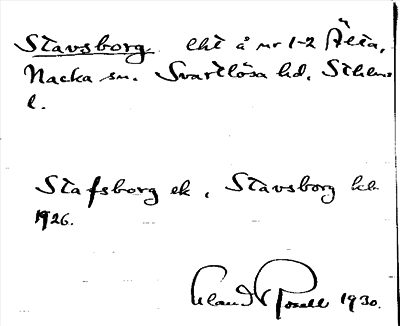 Stavsborg lht å nr 1-2 Älta,
Nacka sn. Svartlösa hd, Sthlms
l.
Stafsborg ek, Stavsborg kb
1926.
Rosell 1930.